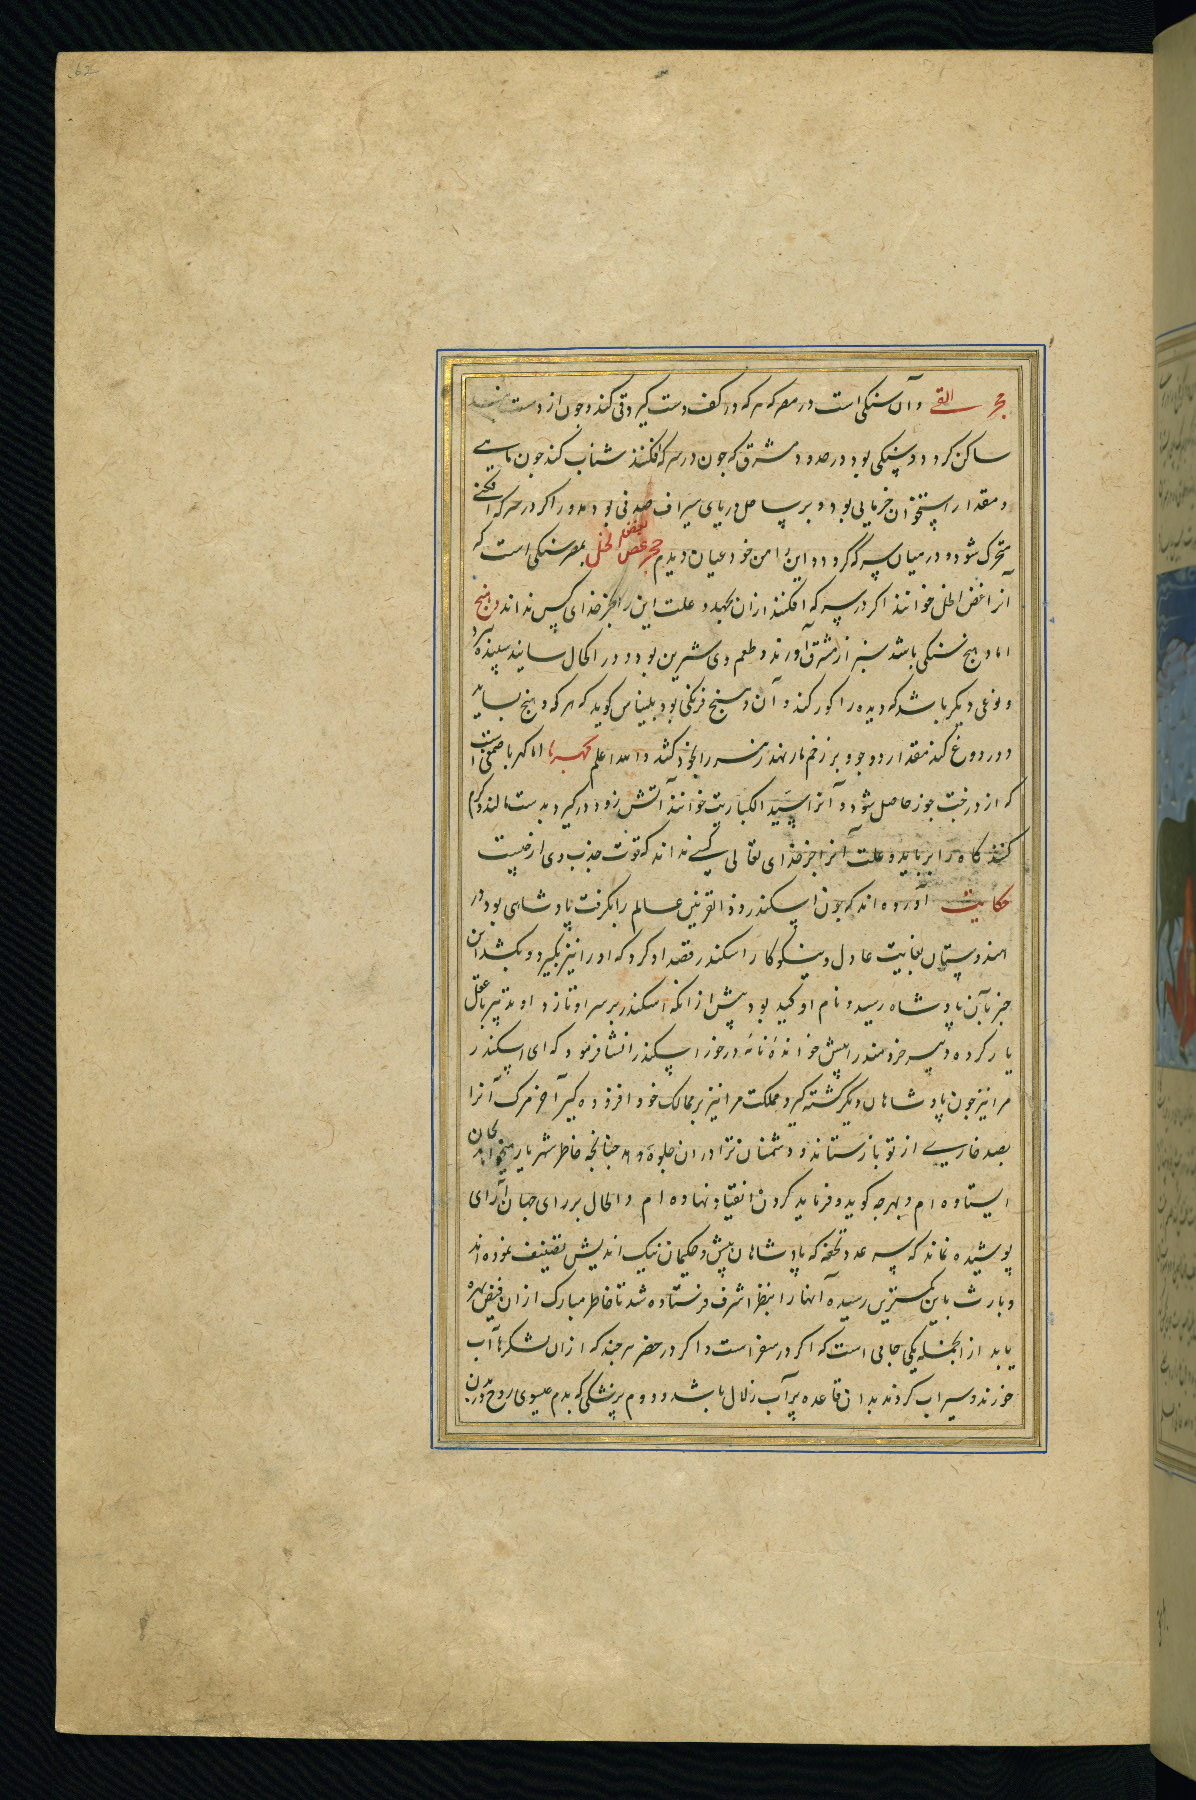 62
حجر القی و آن سنکی است در مصر که هر که در کف دست کیرد قی کند و چون از دست
ساکن کردد و سنکی بود در حدود مشرق که چون در سرکه افکنند شتاب کند چون ماهی
و مقدار استخوان خرمایی بود و بر ساحل دریای سیراف صدفی بود مدور اکر در سرکه افکنی
متحرک شود و در میان سرکه کردد و این را من خود عیان دیدم حجر بمصر سنکی است که
آنرا خوانند اکر در سرکه افکنند ازان بجهد و علت این را بجز خدای کس نداند دهنج
اما دهنج سنکی باشد سبز از مشرق آورند و طعم وی شیرین بود و در الحال
و نوعی دیکر باشد که دیده را کور کند و آن دهنج فرنکی بود بلیناس کوید که هر که دهنج بساید
و در دوغ کند مقدار دو جو و بر زخم مار نهند زهر را بخود کشد والله اعلم کهربا اما کهربا صمغی است
که از درخت جوز حاصل شود و آنرا سید الکباریت خوانند آتش زود در کیرد بدست مالند و کرم
کنند کاه را برباید و علت آنرا جز خدای تعالی کسی نداند که قوت جذب وی از چیست
حکایت آورده اند که چون اسکندر ذو القرنین عالم را بکرفت پادشاهی بود در
هندوستان بغایت عادل و نیکوکار اسکندر قصد او کرد که او را نیز بکیرد و بکشد این
خبر بآن پادشاه رسید و نام او کید بود پیش از انکه اسکندر بر سر او تازد او تدبیر با عقل
یار کرده دبیر خردمند را پیش خوانده نامه در خور اسکندر انشا فرمود که ای اسکندر
مرا نیز چون پادشاهان دیکر کشته کیر و مملکت مرا نیز بر ممالک خود افزوده کیر آخر مرک آنرا
بصد خاری از تو باز ستاند و دشمنان ترا در ان جلوه دهد چنانچه خاطر شهریار میخواهد بجان
ایستاده ام و بهرچه کوید و فرماید کردن انقیاد نهاده ام و الحال بر رای جهان آرای
پوشیده نماند که سه عدد تحفه که پادشاهان پیش و حکیمان نیک اندیش تصنیف نموده اند
و بارث باین کمترین رسیده آنها را بنظر اشرف فرستاده شد تا خاطر مبارک ازان فیض بهره
یابد از الجمله یکی جامی است که اکر در سفر است و اکر در حضر هر چند که ازان لشکرها آب
خورند و سیراب کردند بدان قاعده پر آب زلال باشد و دوم پزشکی که بدم عیسوی روح بدرون